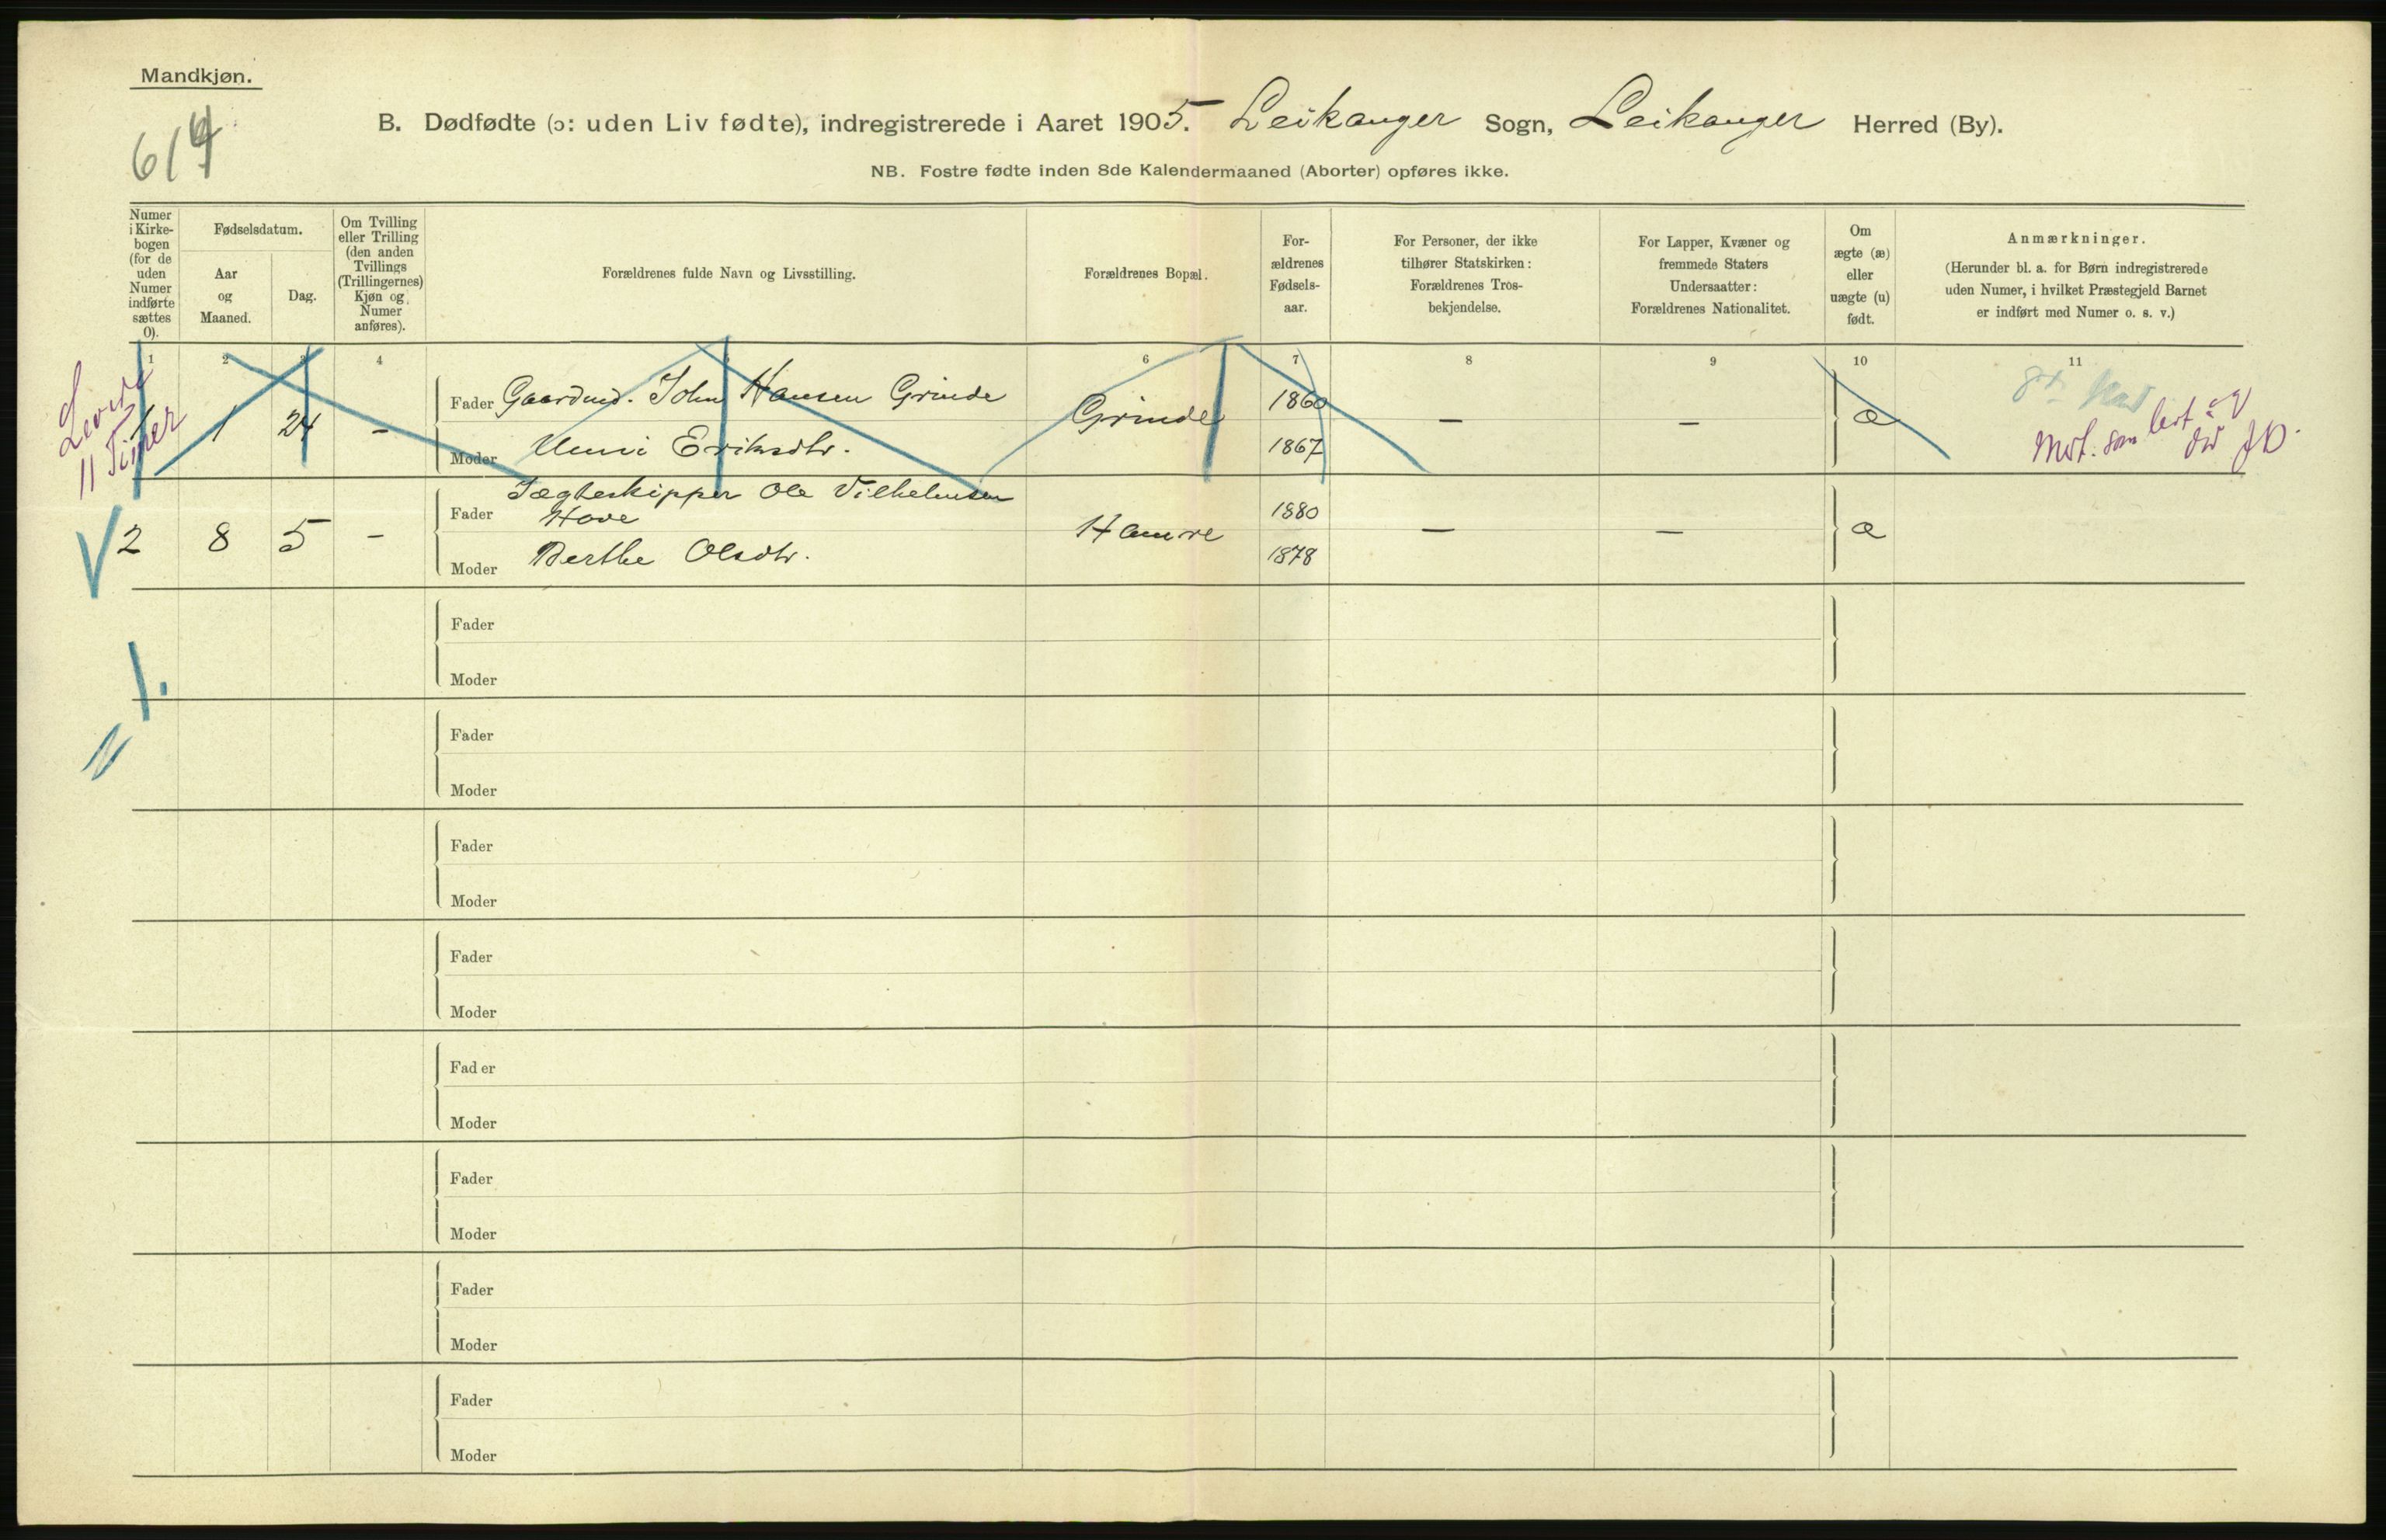 Mandkjøn.
614
B. Dødfødte (ɔ: uden Liv fødte), indregistrerede i Aaret 1905. Leikanger Sogn, Leikanger Herred (By).
NB. Fostre fødte inden 8de Kalendermaaned (Aborter) opføres ikke.
Numer
i Kirke-
bogen
(for de
uden
Numer
indførte
sættes
0).
Fødselsdatum.
Aar
og
Maaned.
Dag.
Om Tvilling
eller Trilling
(den anden
Tvillings
(Trillingernes)
Kjøn og
Numer
anføres).
Forældrenes fulde Navn og Livsstilling.
Forældrenes Bopæl.
For-
ældrenes
Fødsels-
aar.
For Personer, der ikke
tilhører Statskirken:
Forældrenes Tros-
bekjendelse.
For Lapper, Kvæner og
fremmede Staters
Undersaatter:
Forældrenes Nationalitet.
Om
ægte (æ)
eller
uægte (u)
født.
Anmærkninger.
(Herunder bl. a. for Børn indregistrerede
uden Numer, i hvilket Præstegjeld Barnet
er indført med Numer o. s. v.)
1 2 3 4 6 7 8 9 10 11
Levede
11 Timer
1 1 24 -
Fader Gaardmd. John Hansen Grinde
Moder Unni Eriksdtr.
Grinde
1860
1867
— — æ
som levt og
død
2 8 5 -
Jægteskipper Ole Vilhelmsen
Fader Hove
Moder Berthe Olsdtr.
Hamre
1880
1878
— — æ
Fader
Moder
1.
Fader
Moder
Fader
Moder
Fader
Moder
Fader
Moder
Fader
Moder
Fader
Moder
Fader
Moder